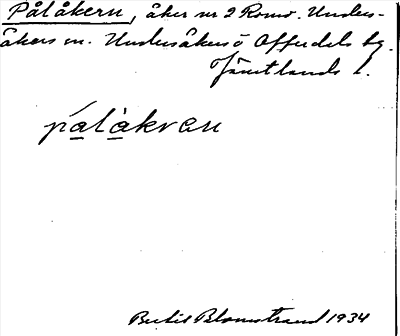 Pålåkern, åker nr 2 Romo. Unders-
åkers sn. Undersåkers o Offerdals tg.
Jämtlands l.
pálàkvæn
Bertil Blomstrand 1934